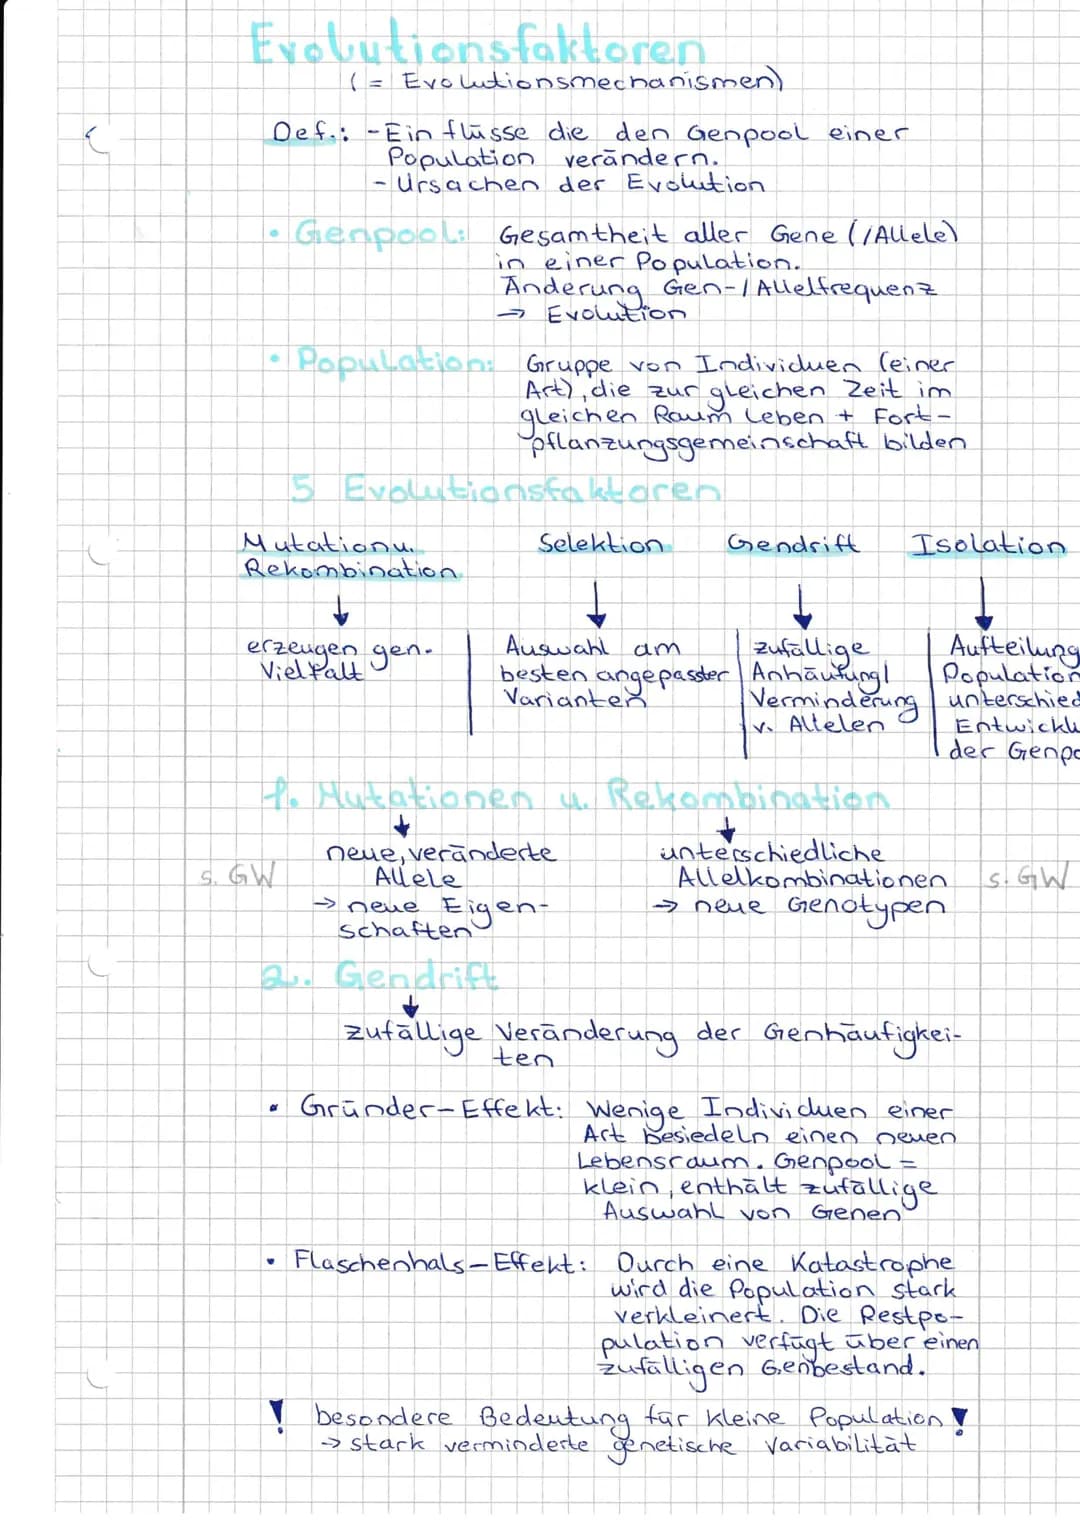 Evolutionsfaktoren
( = Evolutionsmechanismen)
Def.: - Einflüsse die den Genpool einer
Population verändern.
- Ursachen der Evolution
• Genpool: Gesamtheit aller Gene (/Allele)
in einer Population.
Änderung Gen-/Allelfrequenz
→ Evolution
• Population: Gruppe von Individuen (einer
Art), die zur gleichen Zeit im
gleichen Raum leben + Fort-
pflanzungsgemeinschaft bilden
5 Evolutionsfaktoren
Mutation u. Selektion Gendrift Isolation
Rekombination
↓ ↓ ↓ ↓
erzeugen gen. Auswahl am zufällige Aufteilung
Vielfalt besten angepasster Anhäufung/ Population
Varianten Verminderung unterschied
v. Allelen Entwickl
der Genpo
1. Mutationen u. Rekombination
↓ ↓
neue, veränderte unterschiedliche
s. GW Allele Allelkombinationen s. GW
→ neue Eigen- → neue Genotypen
schaften
2. Gendrift
↓
zufällige Veränderung der Genhäufigkei-
ten
• Gründer-Effekt: Wenige Individuen einer
Art besiedeln einen neuen
Lebensraum. Genpool =
klein, enthält zufällige
Auswahl von Genen
• Flaschenhals-Effekt: Durch eine Katastrophe
wird die Population stark
verkleinert. Die Restpo-
pulation verfügt über einen
zufälligen Genbestand.
! besondere Bedeutung für kleine Population !
→ stark verminderte genetische Variabilität